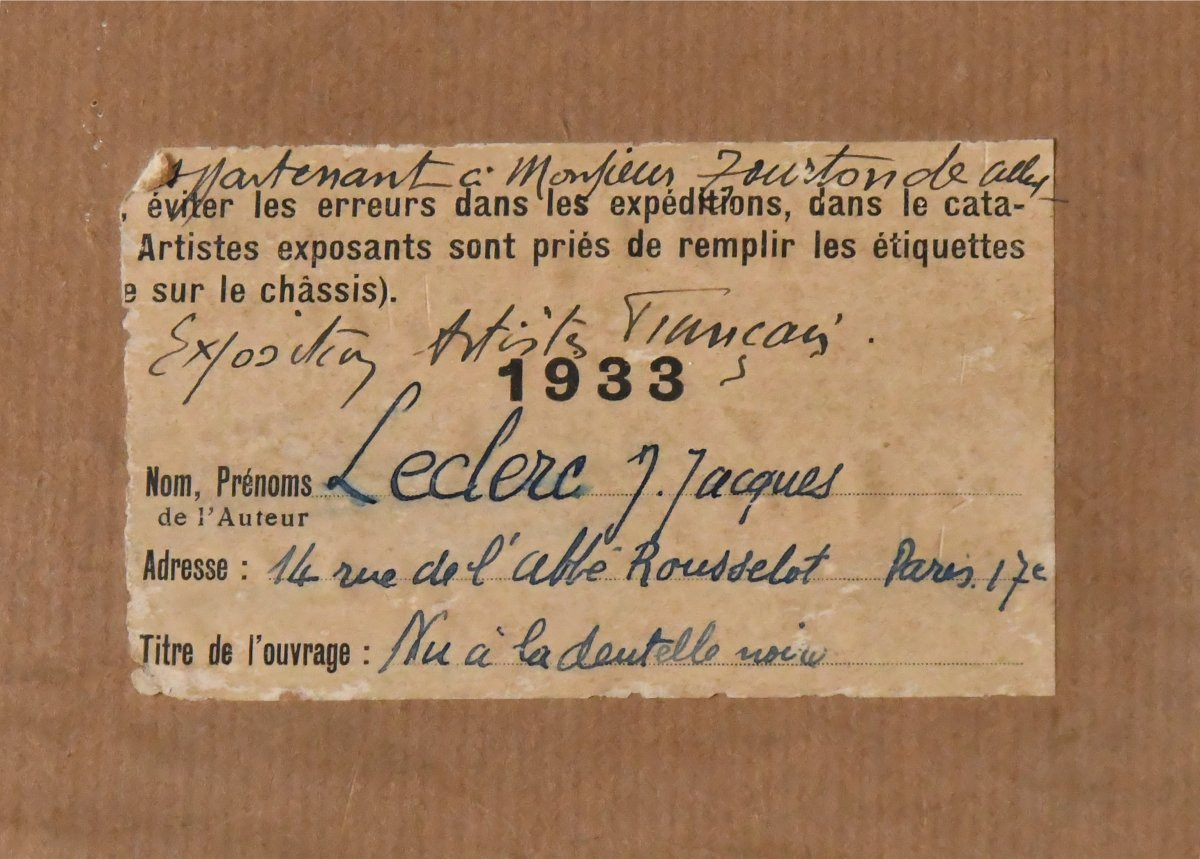 appartenant à Monsieur Fourton de
, éviter les erreurs dans les expéditions, dans le cata-
Artistes exposants sont priés de remplir les étiquettes
e sur le châssis).
Exposition Artistes Français.
1933
Nom, Prénoms Leclerc J. Jacques
de l'Auteur
Adresse : 14 rue de l'abbé Rousselot Paris. 17e
Titre de l'ouvrage : Nu à la dentelle noire